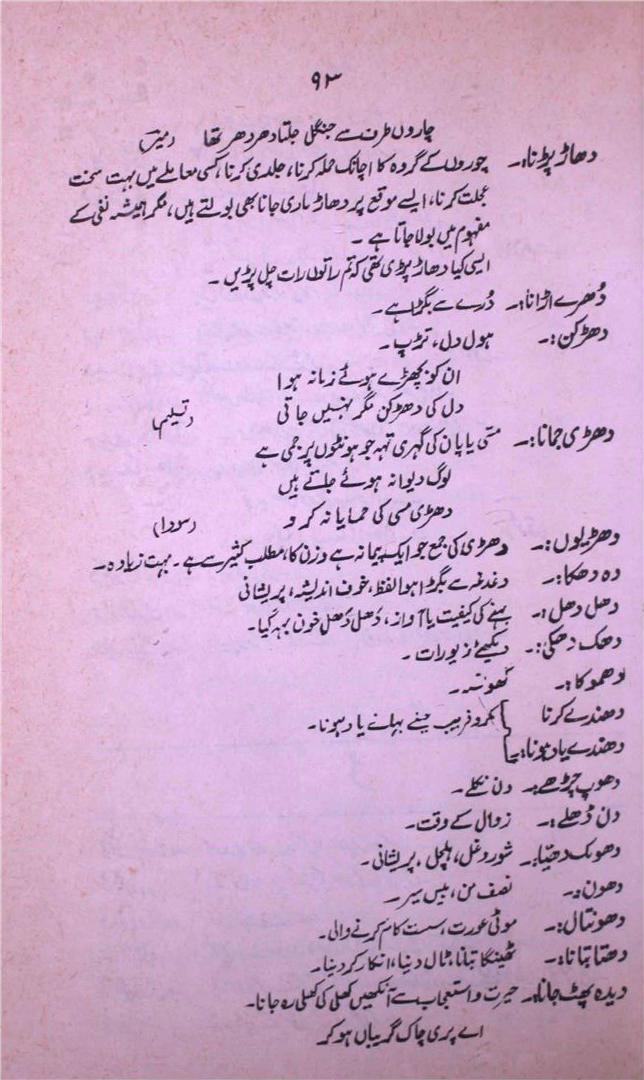 ۹۳
چاروں طرف سے جنگل جلتا دھر دھر تھا (میر)
دھاڑ پڑنا:۔ چوروں کے گروہ کا اچانک حملہ کرنا، جلدی کرنا، کسی معاملے میں بہت سخت
عجلت کرنا، ایسے موقع پر دھاڑ ماری جانا بھی بولتے ہیں، مگر ہمیشہ نفی کے
مفہوم میں بولا جاتا ہے۔
ایسی کیا دھاڑ پڑی تھی کہ تم راتوں رات چل پڑیں۔
دُھرے اڑانا:۔ دُرے سے بگڑا ہے۔
دھڑکن:۔ ہول دل، تڑپ۔
ان کو بچھڑے ہوئے زمانہ ہوا
دل کی دھڑکن مگر نہیں جاتی (تسلیم)
دھڑی جمانا:۔ مسّی یا پان کی گہری تہہ جو ہونٹوں پر جمی ہے
لوگ دیوانہ ہوئے جاتے ہیں
دھڑی مسی کی جمایا نہ کرو (سودا)
دھڑیوں:۔ دھڑی کی جمع جو ایک پیمانہ ہے وزن کا، مطلب کثیر سے ہے۔ بہت زیادہ۔
دہ دھکا:۔ دغدغہ سے بگڑا ہوا لفظ، خوف اندیشہ، پریشانی
دھل دھل:۔ بہنے کی کیفیت یا آواز، دُھل دُھل خون بہہ گیا۔
دھک دھکی:۔ دیکھئے زیورات۔
دھموکا:۔ گھونسہ۔
دھندے کرنا } مکر و فریب جینے بہانے یاد ہونا۔
دھندے یاد ہونا:۔
دھوپ چڑھے:۔ دن نکلے۔
دن ڈھلے:۔ زوال کے وقت۔
دھوک دھیّا:۔ شور و غل، ہلچل، پریشانی۔
دھون:۔ نصف من، بیس سیر۔
دھونتال:۔ موٹی عورت، سست کام کرنے والی۔
دھتا بتانا:۔ ٹھینگا بتانا، ٹال دینا، انکار کر دینا۔
دیدہ پھٹ جانا:۔ حیرت و استعجاب سے آنکھیں کھلی کی کھلی رہ جانا۔
اے پری چاک گریباں ہو کر